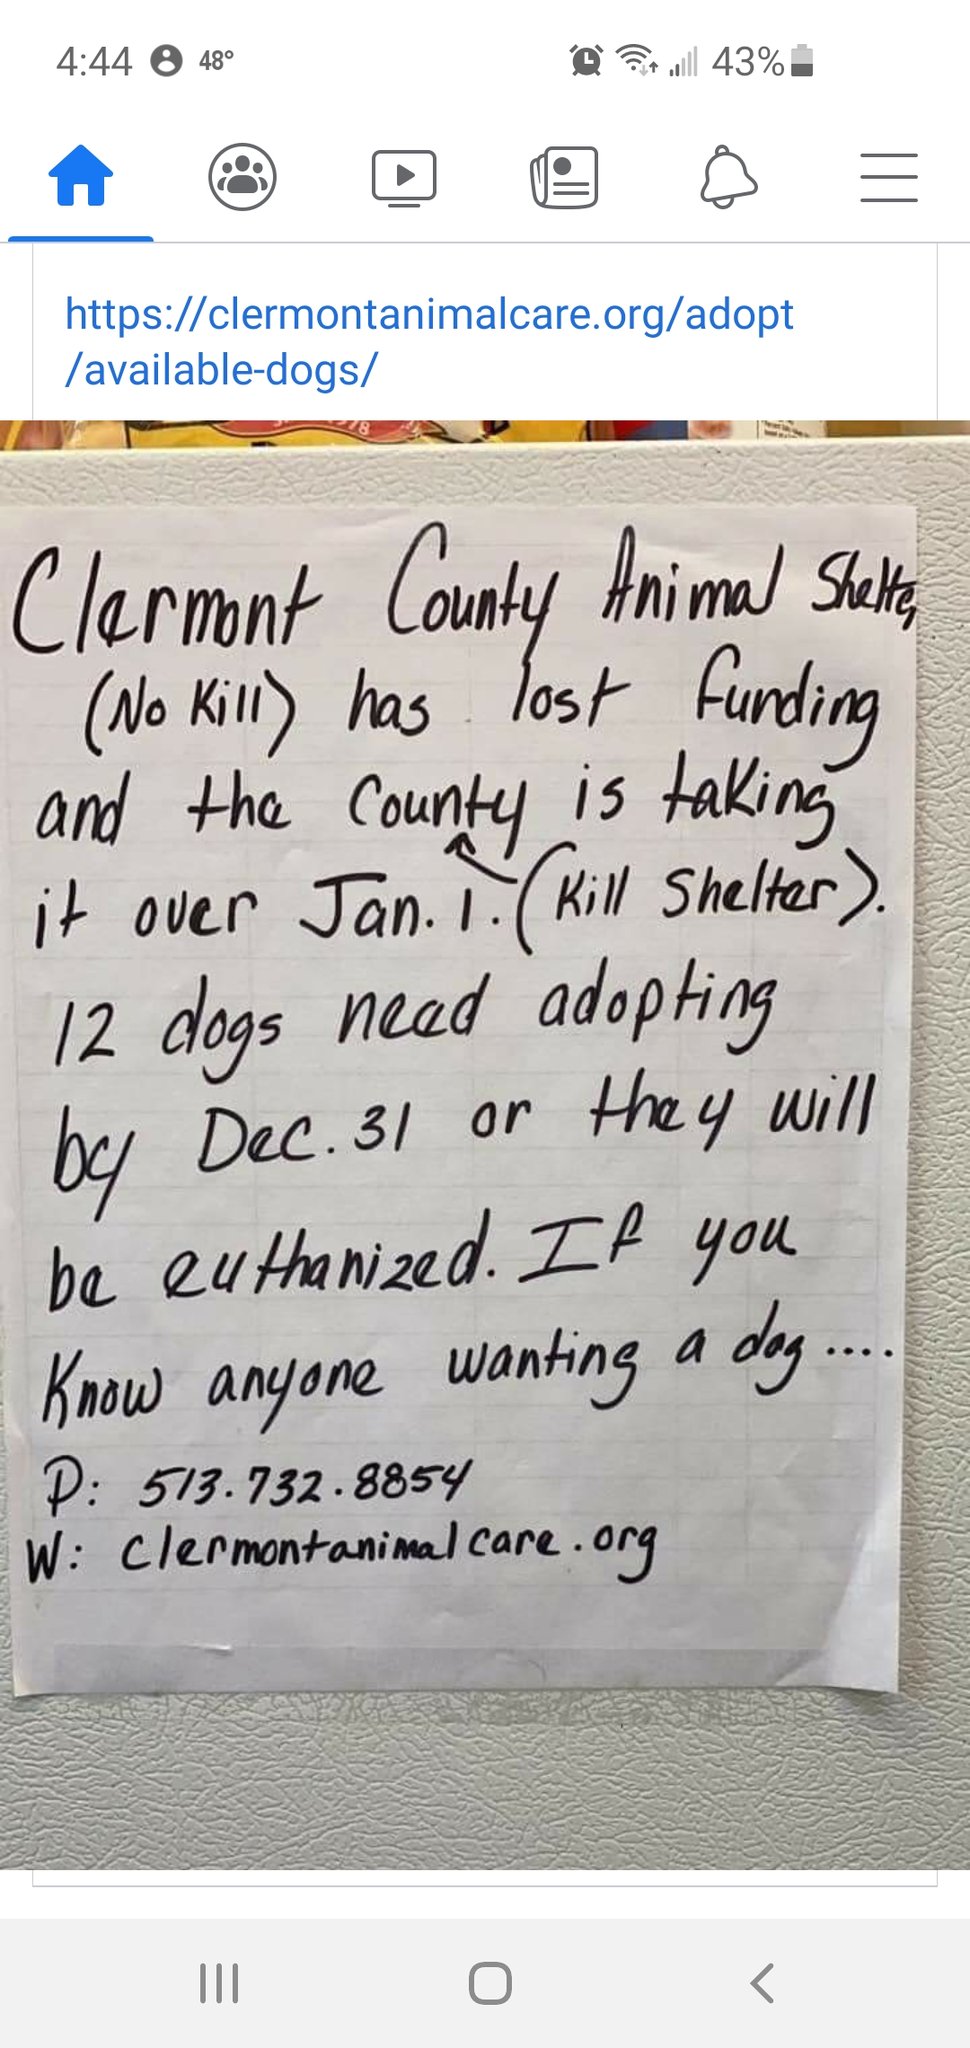 4:44 48° 43%
https://clermontanimalcare.org/adopt
/available-dogs/
Clermont County Animal Shelter
(No Kill) has lost funding
and the County is taking
it over Jan. 1. (Kill Shelter).
12 dogs need adopting
by Dec. 31 or they will
be euthanized. If you
Know anyone wanting a dog....
P: 513.732.8854
W: Clermontanimalcare.org